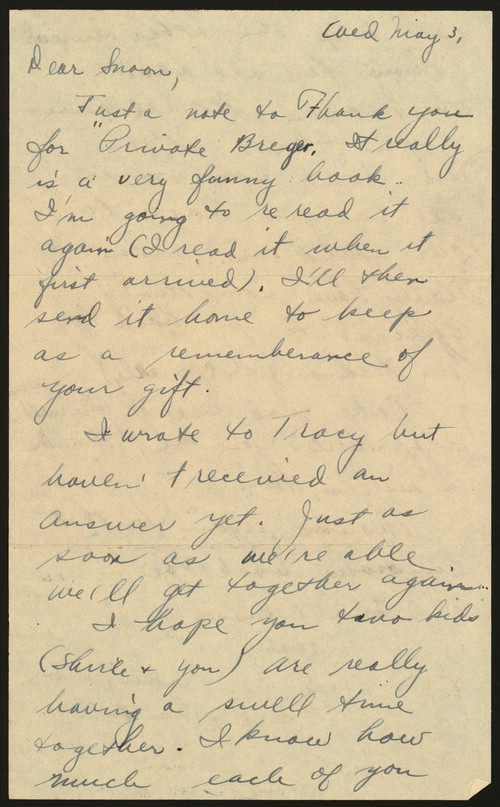 Wed May 3,
Dear Snoon,
Just a note to Thank you
for "Private Breger. It really
is a very funny book.
I'm going to reread it
again (I read it when it
first arrived). I'll then
send it home to keep
as a rememberance of
your gift.
I wrote to Tracy but
haven't received an
answer yet. Just as
soon as we're able
we'll get together again.
I hope you two kids
(Shirle + you) are really
having a swell time
together. I know how
much each of you